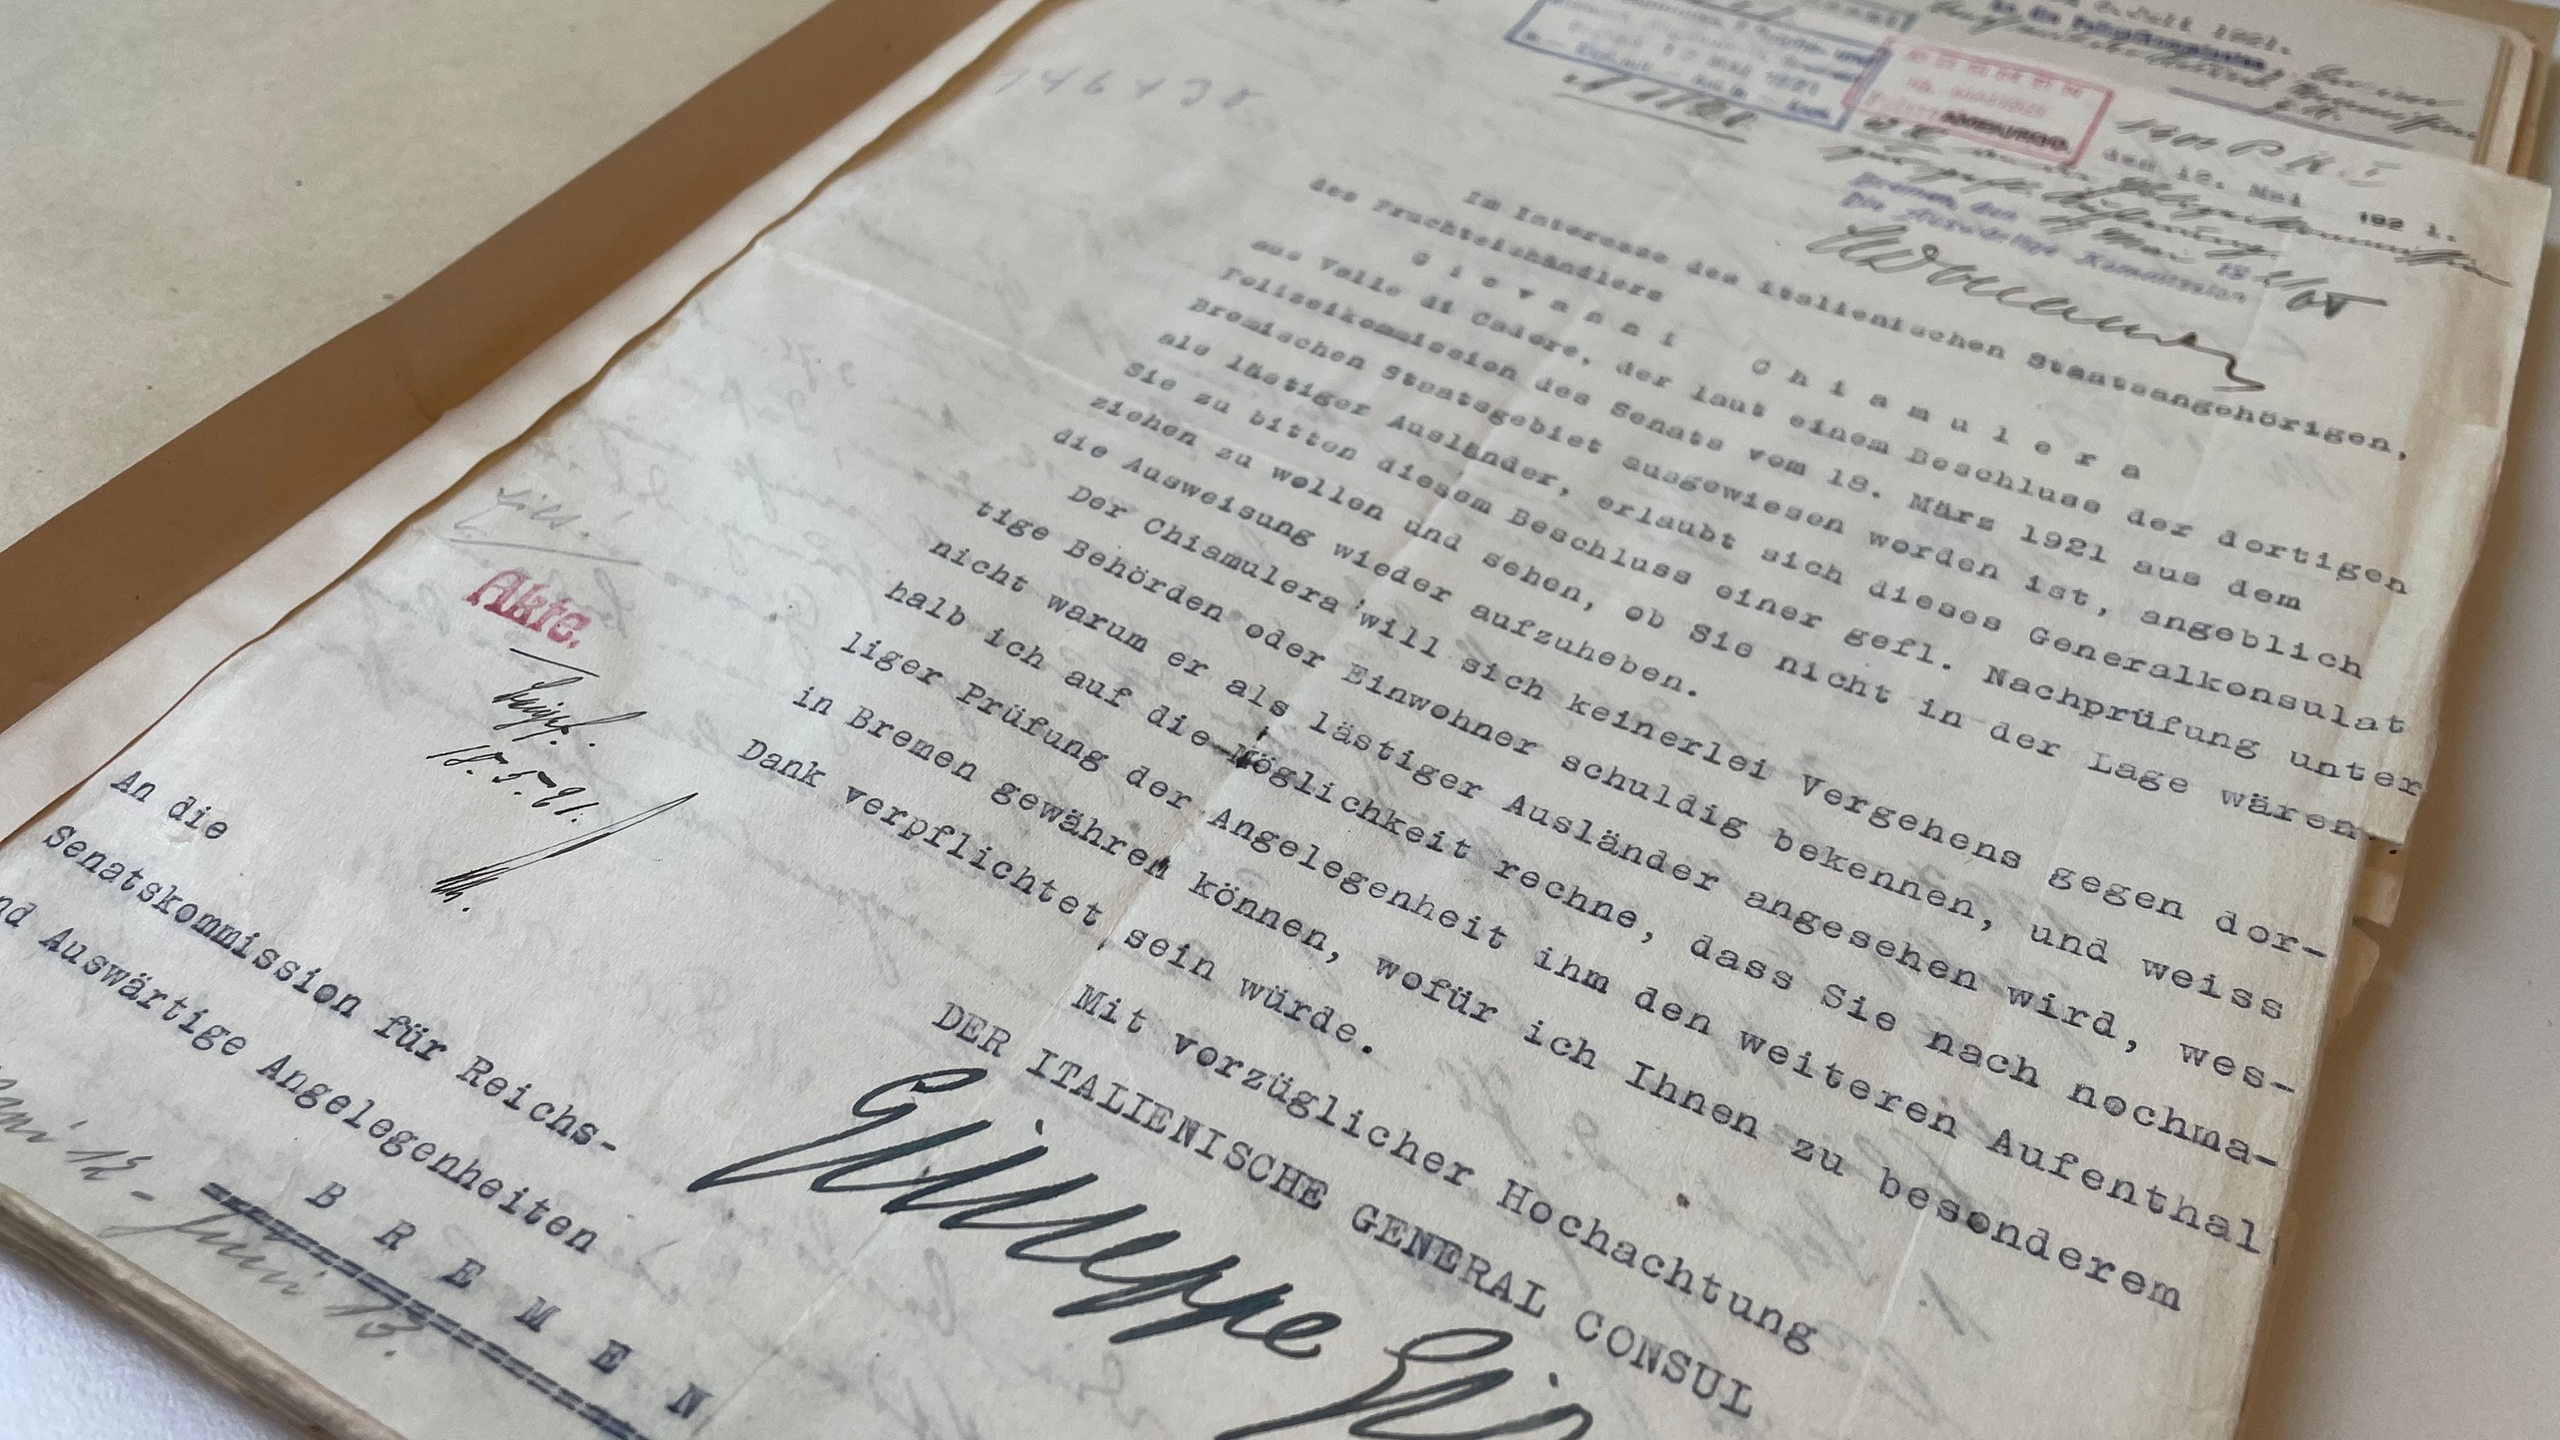 146438
den 12. Mai 1921.
Bremen, den
Die Auswärtige Kommission
Im Interesse des italienischen Staatsangehörigen,
des Fruchteishändlers
G i o v a n n i   C h i a m u l e r a
aus Valle di Cadore, der laut einem Beschluss der dortigen
Polizeikommission des Senats vom 18. März 1921 aus dem
Bremischen Staatsgebiet ausgewiesen worden ist, angeblich
als lästiger Ausländer, erlaubt sich dieses Generalkonsulat
Sie zu bitten diesem Beschluss einer gefl. Nachprüfung unter
ziehen zu wollen und sehen, ob Sie nicht in der Lage wären..
die Ausweisung wieder aufzuheben.
Der Chiamulera will sich keinerlei Vergehens gegen dor-
tige Behörden oder Einwohner schuldig bekennen, und weiss
nicht warum er als lästiger Ausländer angesehen wird, wes-
halb ich auf die Möglichkeit rechne, dass Sie nach nochma-
liger Prüfung der Angelegenheit ihm den weiteren Aufenthal
in Bremen gewähren können, wofür ich Ihnen zu besonderem
Dank verpflichtet sein würde.
Mit vorzüglicher Hochachtung
DER ITALIENISCHE GENERAL CONSUL
Giuseppe
Akte.
18.5.21.
An die
Senatskommission für Reichs-
nd Auswärtige Angelegenheiten
B R E M E N
Juni 13.